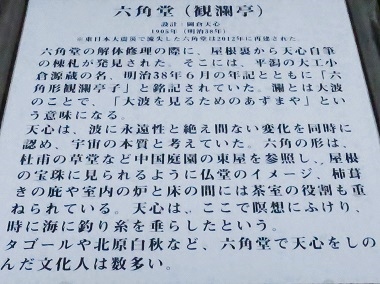 六角堂（観瀾亭）
設計：岡倉天心
1905年（明治38年）
※東日本大震災で流失した六角堂は2012年に再建された。
六角堂の解体修理の際に、屋根裏から天心自筆
の棟札が発見された。そこには、平潟の大工小
倉源蔵の名、明治38年６月の年記とともに「六
角形観瀾亭子」と銘記されていた。瀾とは大波
のことで、「大波を見るためのあずまや」とい
う意味になる。
天心は、波に永遠性と絶え間ない変化を同時に
認め、宇宙の本質と考えていた。六角の形は、
杜甫の草堂など中国庭園の東屋を参照し、屋根
の宝珠に見られるように仏堂のイメージ、柿葺
きの庇や室内の炉と床の間には茶室の役割も重
ねられている。天心は、ここで瞑想にふけり、
時に海に釣り糸を垂らしたという。
タゴールや北原白秋など、六角堂で天心をしの
んだ文化人は数多い。